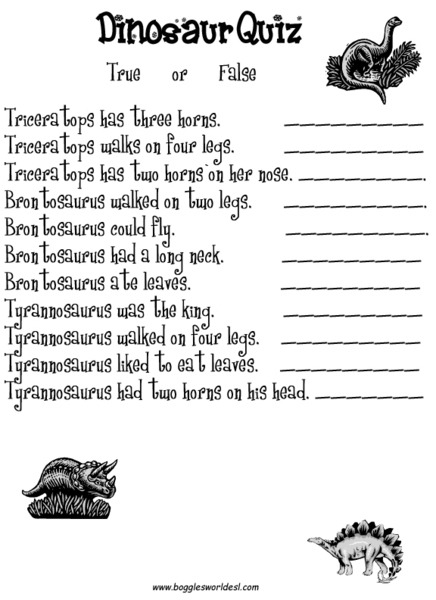 Dinosaur Quiz
True or False
Triceratops has three horns. __________
Triceratops walks on four legs. __________
Triceratops has two horns on her nose. __________.
Brontosaurus walked on two legs. __________.
Brontosaurus could fly. __________.
Brontosaurus had a long neck. __________
Brontosaurus ate leaves. __________
Tyrannosaurus was the king. __________
Tyrannosaurus walked on four legs. __________
Tyrannosaurus liked to eat leaves. __________
Tyrannosaurus had two horns on his head. ________
www.bogglesworldesl.com